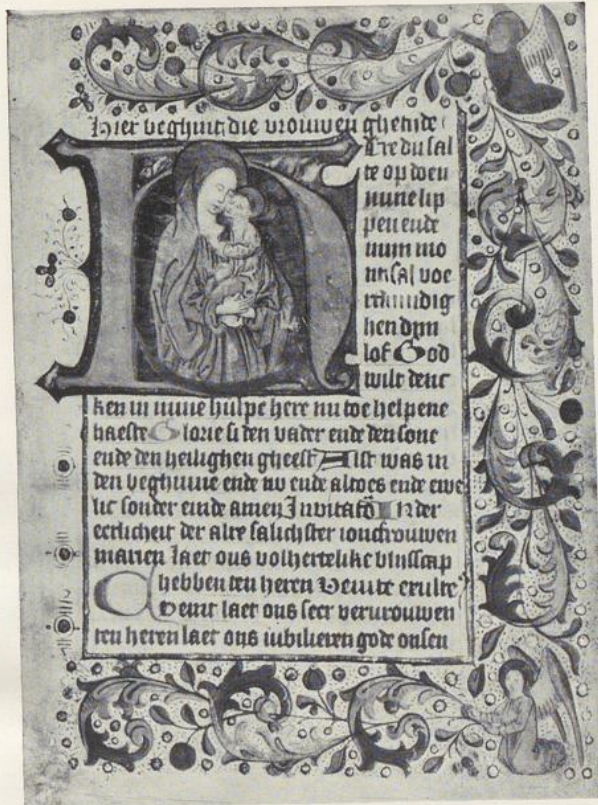 Hier beghint die vrouwen ghetide
Ere du sal
te op doen
mine lip
pen ende
min mo
nt sal voe
rcundig
hen dyn
lof God
wilt denc
ken in mine hulpe here mi toe helpene
haeste Glorie si den vader ende den sone
ende den heilighen gheest Alst was in
den beghinne ende nv ende altoes ende ewe
lic sonder einde amen Invitatō In der
eerlicheit der alre salichster ioncfrouwen
marien laet ons volhertelike bliisscap
hebben ten heren Venite exulte
Oemt laet ons seer vervrouwen
ten heren laet ons iubilieren gode onsen